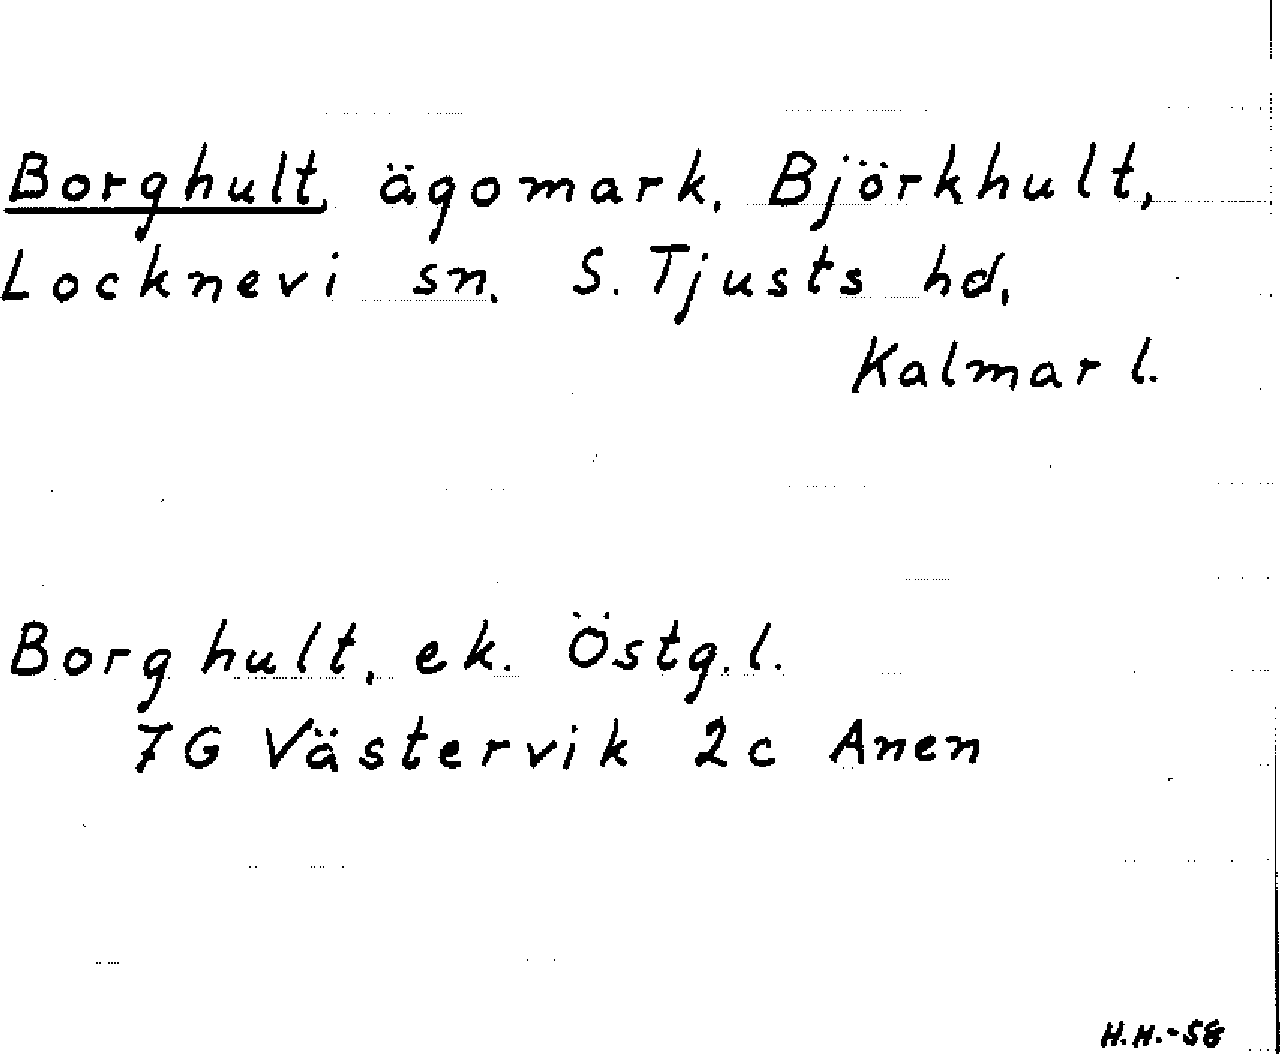 Borghult, ägomark, Björkhult,
Locknevi sn. S. Tjusts hd,
Kalmar l.
Borghult, ek. Östg. l.
7G Västervik 2c Anen
H.H.-58